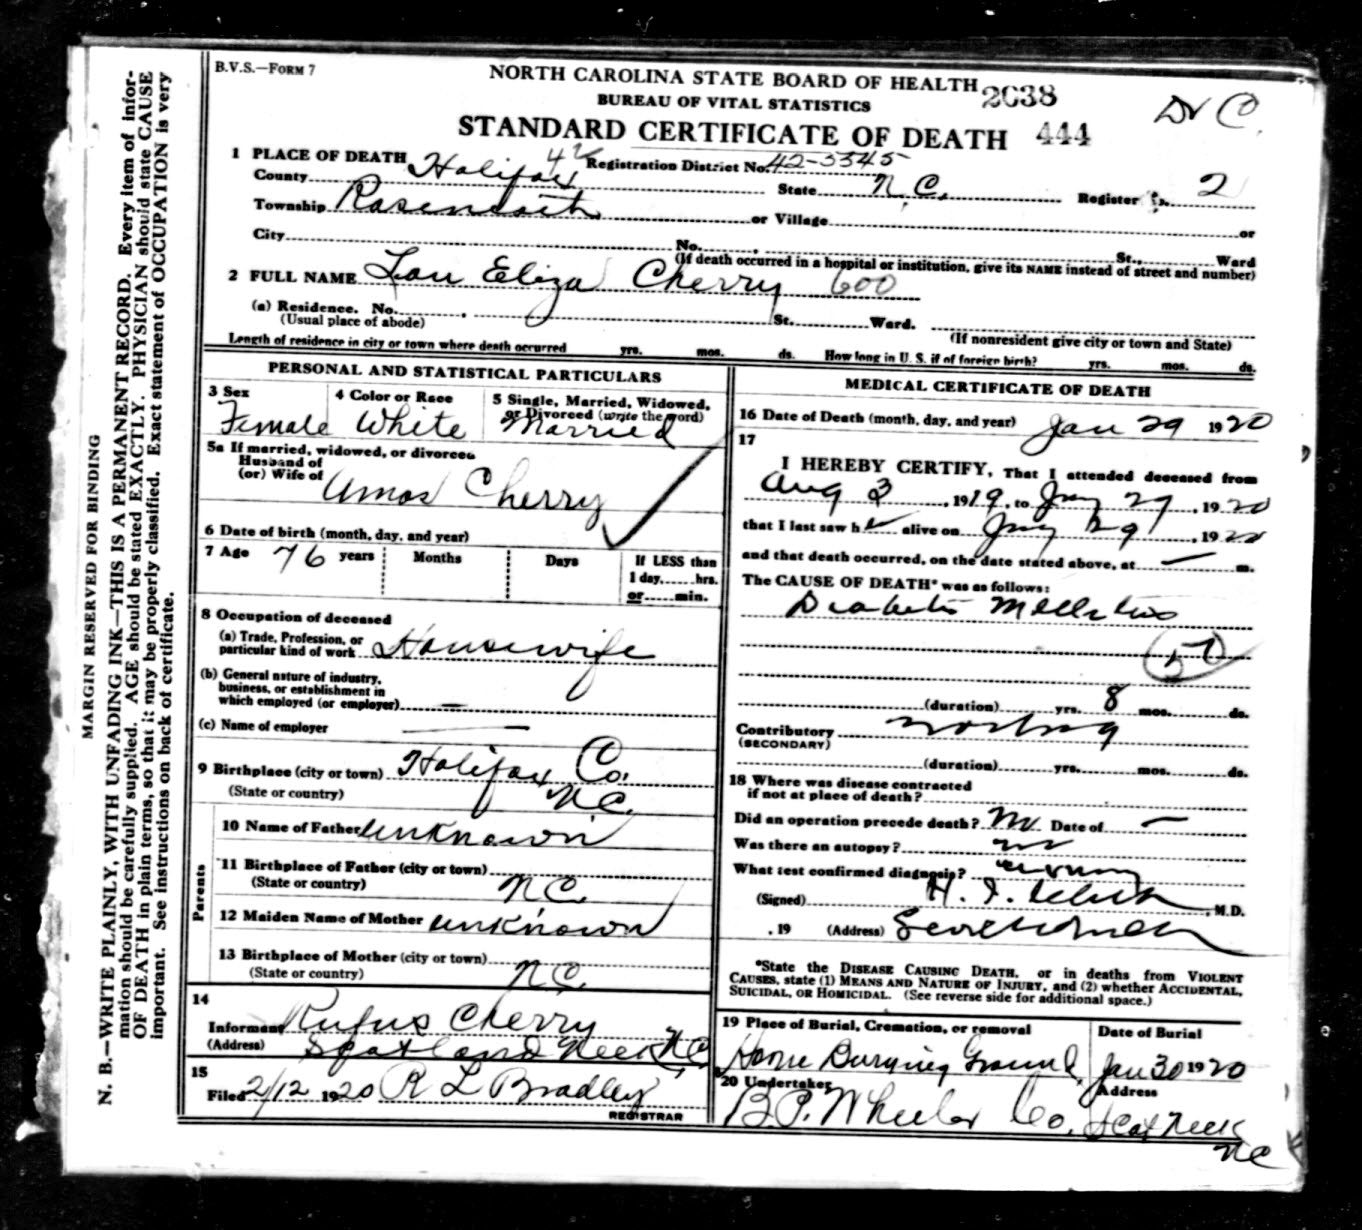 B.V.S.—FORM 7
NORTH CAROLINA STATE BOARD OF HEALTH 2038
BUREAU OF VITAL STATISTICS
STANDARD CERTIFICATE OF DEATH 444
Dr C.
1 PLACE OF DEATH 42 Registration District No. 42-5545
County Halifax State N.C. Register 2
Township or Village or
City No. St., Ward
(If death occurred in a hospital or institution, give its NAME instead of street and number)
2 FULL NAME Lou Eliza Cherry 600
(a) Residence. No. St. Ward.
(Usual place of abode) (If nonresident give city or town and State)
Length of residence in city or town where death occurred yrs. mos. ds. How long in U. S. if of foreign birth? yrs. mos. ds.
PERSONAL AND STATISTICAL PARTICULARS
3 Sex 4 Color or Race 5 Single, Married, Widowed, or Divorced (write the word)
Female White Married
5a If married, widowed, or divorced
Husband of
(or) Wife of Amos Cherry
6 Date of birth (month, day, and year)
7 Age 76 years Months Days If LESS than
1 day,......hrs.
or......min.
8 Occupation of deceased
(a) Trade, Profession, or
particular kind of work Housewife
(b) General nature of industry,
business, or establishment in
which employed (or employer) —
(c) Name of employer —
9 Birthplace (city or town) Halifax Co.
(State or country) N.C.
Parents
10 Name of Father Unknown
11 Birthplace of Father (city or town)
(State or country) N.C.
12 Maiden Name of Mother Unknown
13 Birthplace of Mother (city or town)
(State or country) N.C.
14
Informant Rufus Cherry
(Address) Scotland Neck N.C.
15
Filed 2/12 1920 R L Bradley
REGISTRAR
MEDICAL CERTIFICATE OF DEATH
16 Date of Death (month, day, and year) Jan 29 1920
17
I HEREBY CERTIFY, That I attended deceased from
Aug 3, 1919, to Jany 29, 1920
that I last saw h alive on Jany 29, 1920
and that death occurred, on the date stated above, at — m.
The CAUSE OF DEATH* was as follows:
Diabetis Mellitus
50
(duration) yrs. 8 mos. ds.
Contributory
(SECONDARY)
(duration) yrs. mos. ds.
18 Where was disease contracted
if not at place of death?
Did an operation precede death? no Date of —
Was there an autopsy? no
What test confirmed diagnosis?
(Signed) H. I. , M.D.
, 19 (Address)
*State the DISEASE CAUSING DEATH, or in deaths from VIOLENT
CAUSES, state (1) MEANS AND NATURE OF INJURY, and (2) whether ACCIDENTAL,
SUICIDAL, OR HOMICIDAL. (See reverse side for additional space.)
19 Place of Burial, Cremation, or removal Date of Burial
Home Burying Ground Jan 30 1920
20 Undertaker Address
B.P. Wheeler Co. Scot Neck
NC
MARGIN RESERVED FOR BINDING
N. B.—WRITE PLAINLY, WITH UNFADING INK—THIS IS A PERMANENT RECORD. Every item of infor-
mation should be carefully supplied. AGE should be stated EXACTLY. PHYSICIAN should state CAUSE
OF DEATH in plain terms, so that it may be properly classified. Exact statement of OCCUPATION is very
important. See instructions on back of certificate.